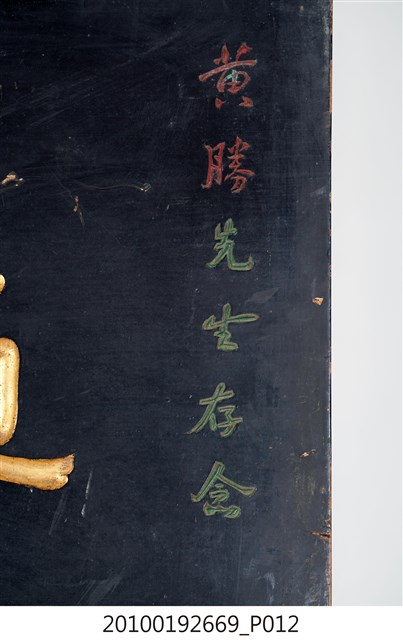 黃勝先生存念
20100192669_P012